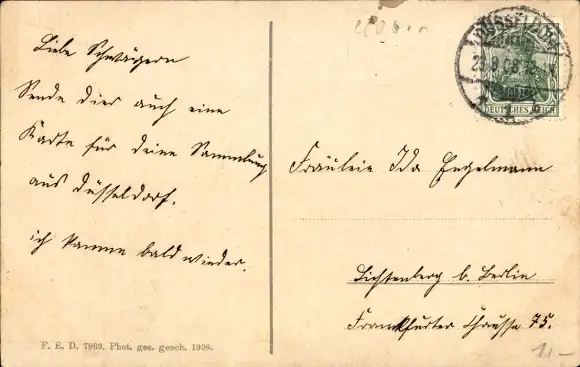 Liebe Schwägern
Sende dier auch eine
Karte für deine Sammlung
aus Düsseldorf.
ich komme bald wieder.
F. E. D. 7969. Phot. ges. gesch. 1908.
DÜSSELDORF
DEUTSCHES REICH
Fräulein Ida Engelmann
Lichtenberg b. Berlin
Frankfurter Chaussee 75.
1.-